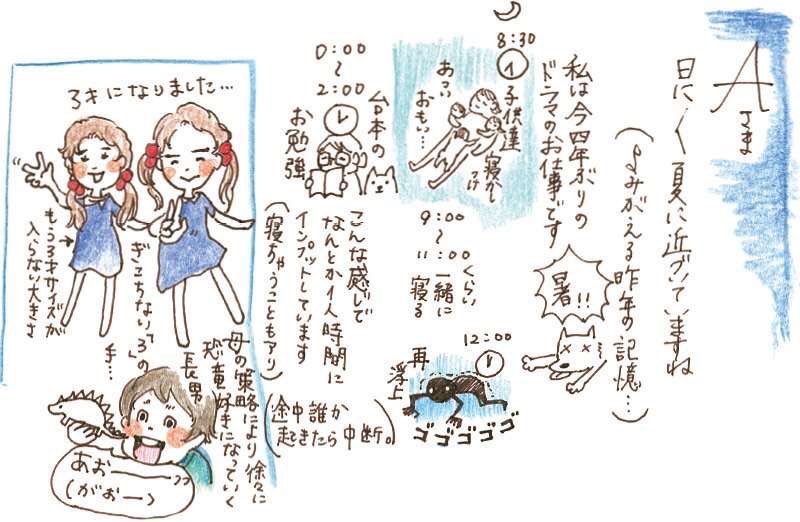 Aさま
日に〱夏に近づいていますね
(よみがえる昨年の記憶…)
暑!!
私は今四年ぶりの
ドラマのお仕事です
8:30
子供達
寝かしつけ
あつい
おもい…
9:00
〜
11:00くらい
一緒に
寝る
12:00
再
浮上
ゴゴゴゴゴ
0:00
〜
2:00
台本の
お勉強
こんな感じで
なんとか1人時間に
インプットしています
(寝ちゃうこともアリ)
(途中誰か
起きたら中断。)
3才になりました…
もう3才サイズが
入らない大きさ
ぎこちない「3」の
手…
母の策略により徐々に
恐竜好きになっていく
長男
あおーーー??
(がおー)